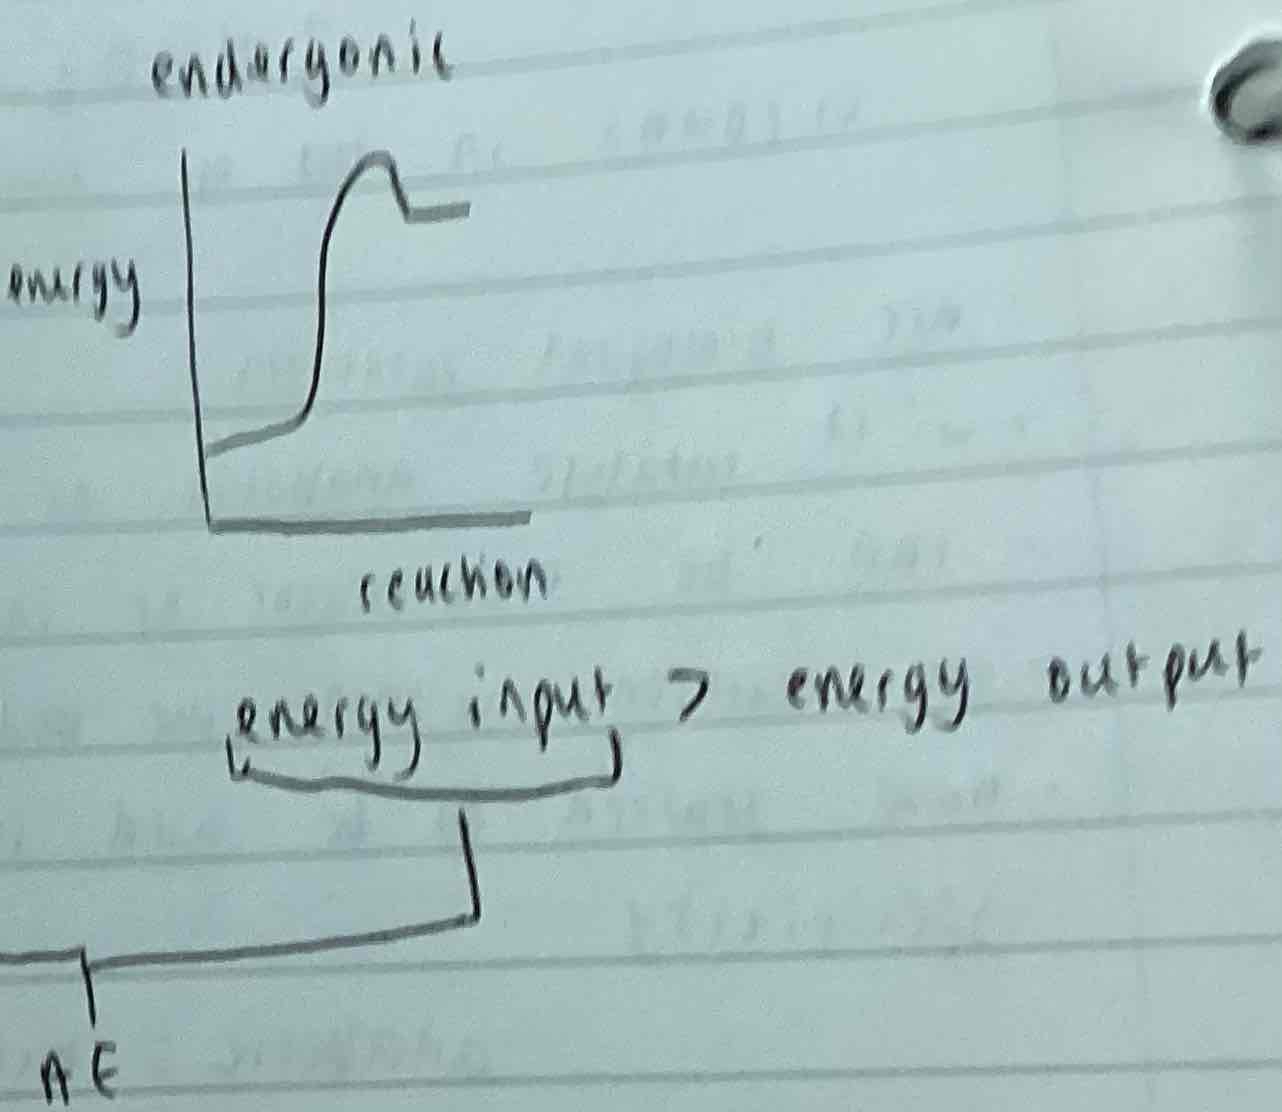 endergonic
energy
reaction
energy input > energy output
AE